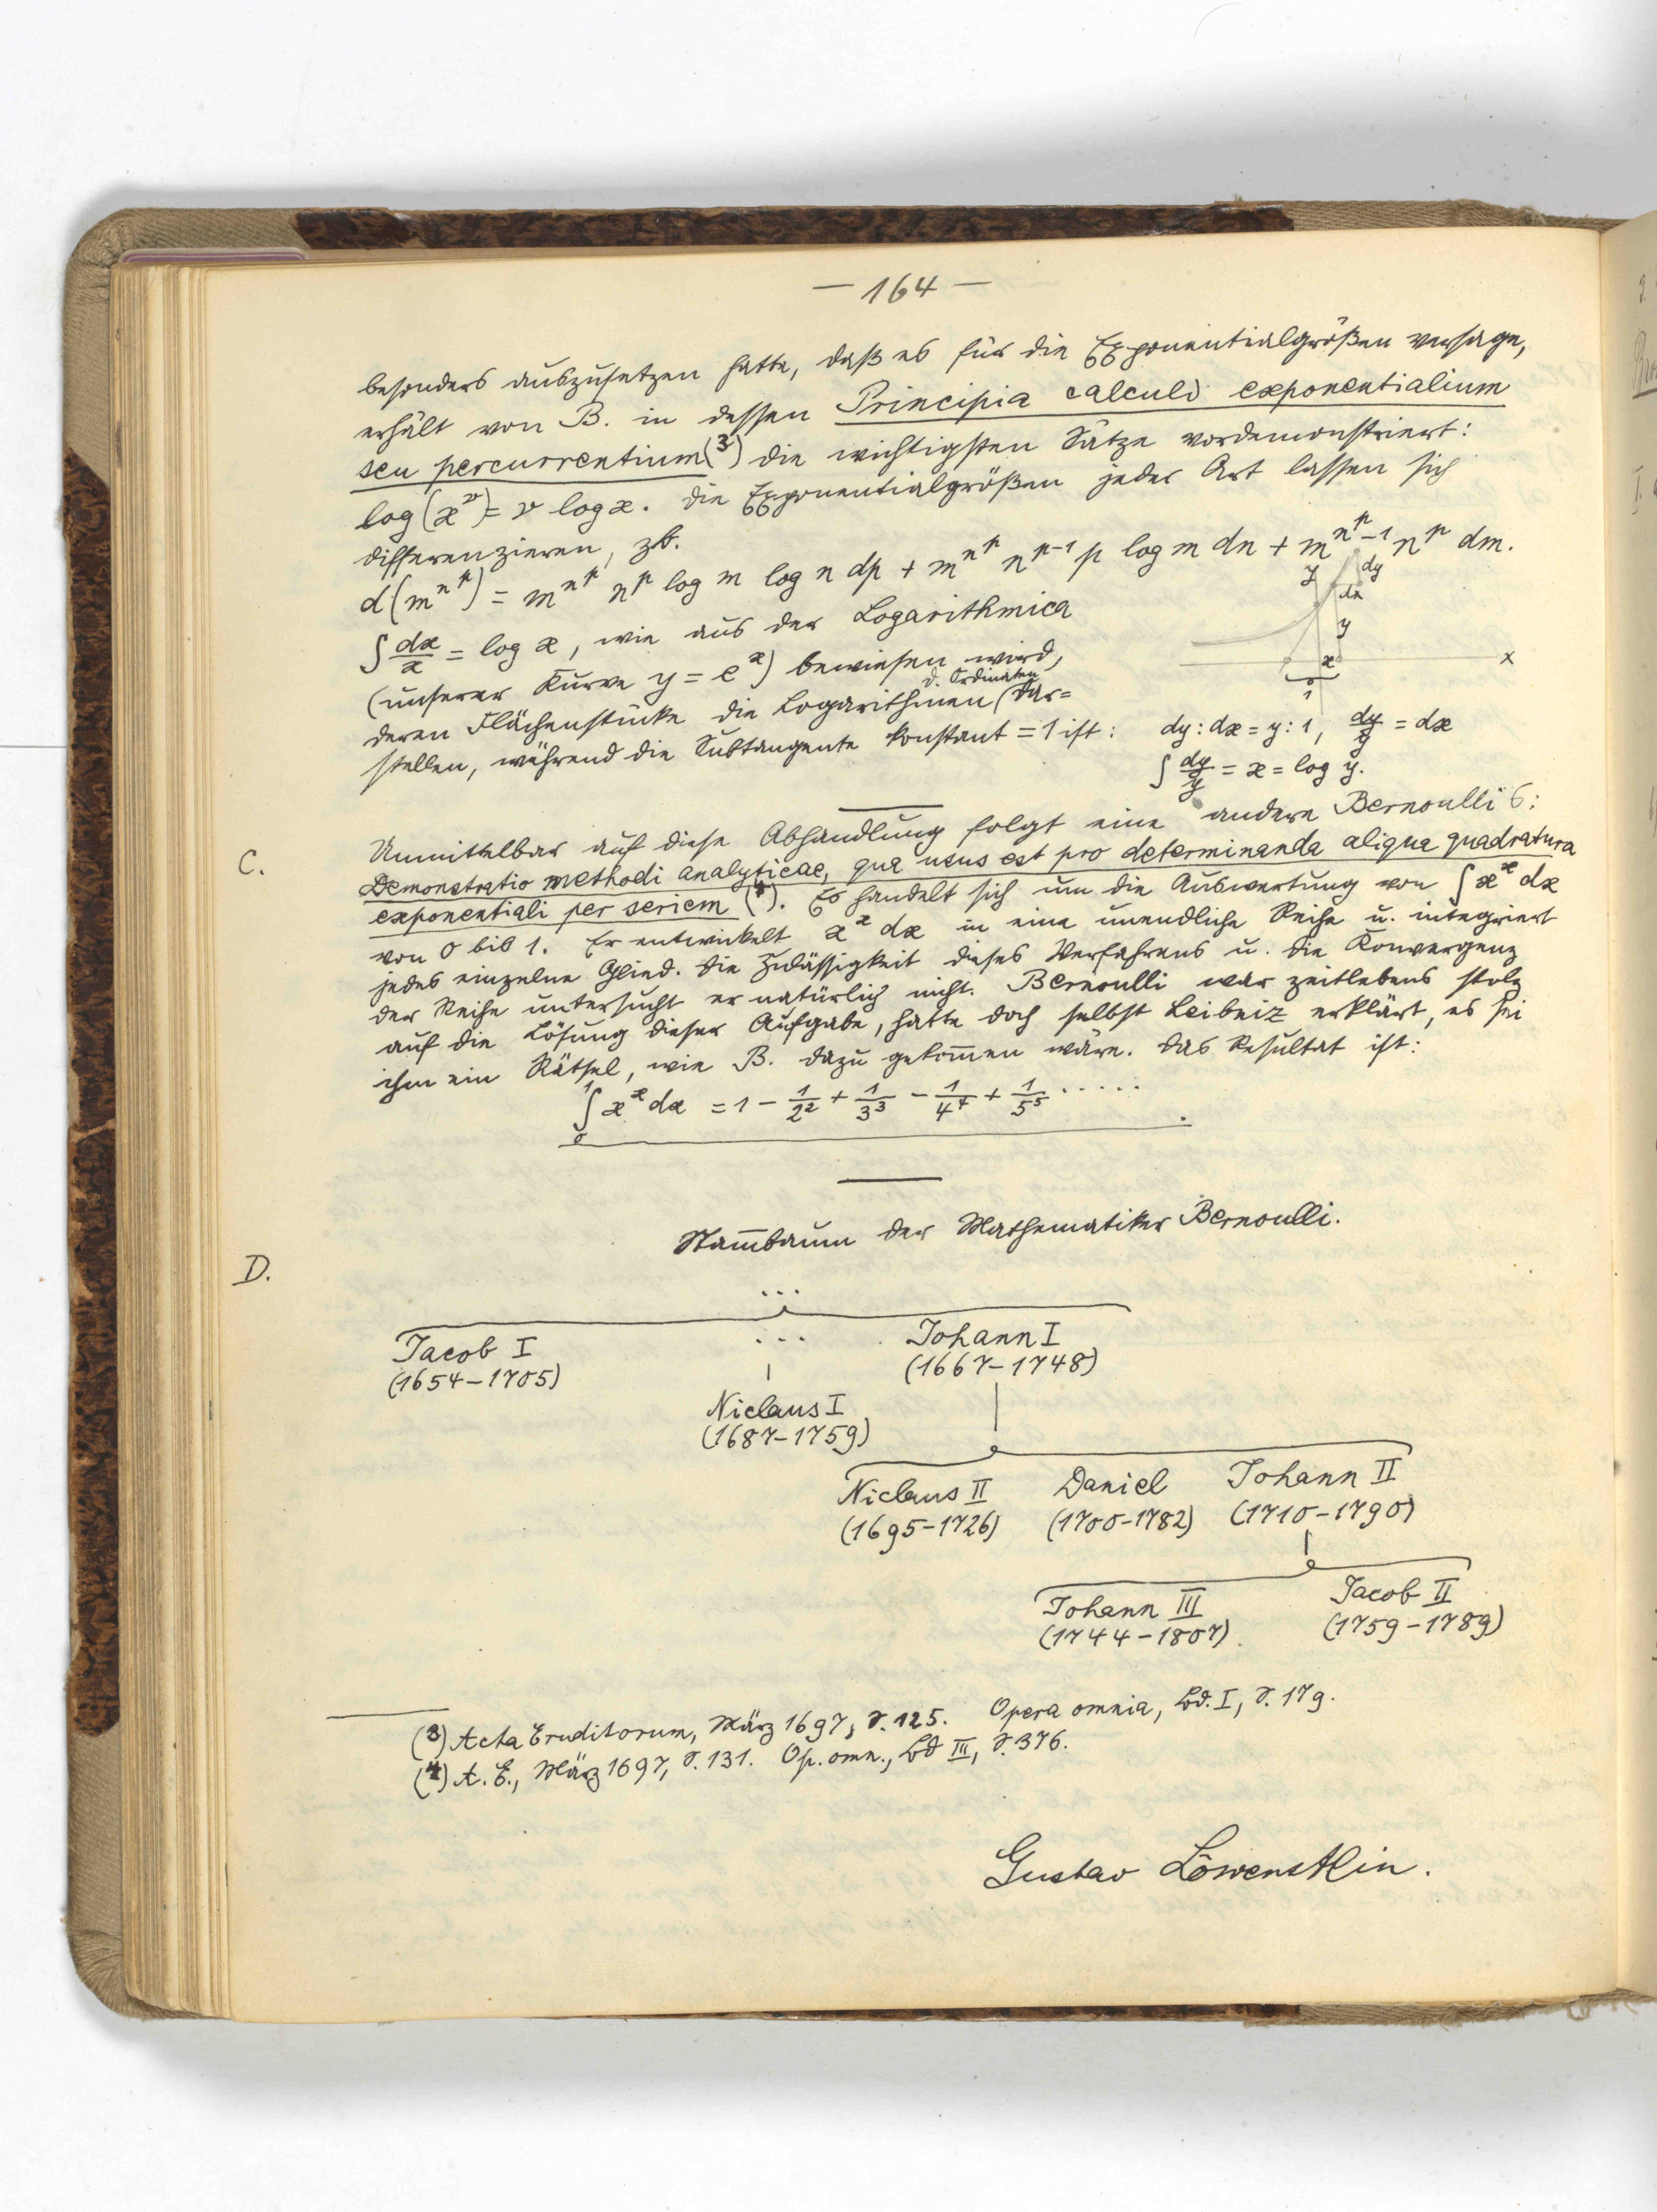 — 164 —
besonders auszusetzen hatte, daß es für die Exponentialgrößen versage,
erhält von B. in dessen Principia calculi exponentialium
seu percurrentium (3) die wichtigsten Sätze vordemonstriert:
log(x^v) = v log x. Die Exponentialgrößen jeder Art lassen sich
differenzieren, zB.
d(m^n^p) = m^n^p n^p log m log n dp + m^n^p n^p-1 p log m dn + m^n^p-1 n^p dm.
∫ dx/x = log x, wie aus der Logarithmica
(unserer Kurve y = e^x) bewiesen wird,
deren Flächenstücke die Logarithmen (d. Ordinaten dar=
stellen, während die Subtangente konstant = 1 ist:
y
dy
dx
y
x
x
1
dy : dx = y : 1, dy/y = dx
∫ dy/y = x = log y.
C.
Unmittelbar auf diese Abhandlung folgt eine andere Bernoulli's:
Demonstratio methodi analyticae, qua usus est pro determinanda aliqua quadratura
exponentiali per seriem (4). Es handelt sich um die Auswertung von ∫ x^x dx
von 0 bis 1. Er entwickelt x^x dx in eine unendliche Reihe u. integriert
jedes einzelne Glied. Die Zulässigkeit dieses Verfahrens u. die Konvergenz
der Reihe untersucht er natürlich nicht. Bernoulli war zeitlebens stolz
auf die Lösung dieser Aufgabe, hatte doch selbst Leibniz erklärt, es sei
ihm ein Rätsel, wie B. dazu gekom̄en wäre. Das Resultat ist:
∫₀¹ x^x dx = 1 − 1/2² + 1/3³ − 1/4⁴ + 1/5⁵ . . . . .
D.
Stam̄baum der Mathematiker Bernoulli.
...
Jacob I ... Johann I
(1654–1705) (1667–1748)
Niclaus I
(1687–1759)
Niclaus II Daniel Johann II
(1695–1726) (1700–1782) (1710–1790)
Johann III Jacob II
(1744–1807) (1759–1789)
(3) Acta Eruditorum, März 1697, S. 125. Opera omnia, Bd. I, S. 179.
(4) A. E., März 1697, S. 131. Op. omn., Bd III, S. 376.
Gustav Löwenstein.